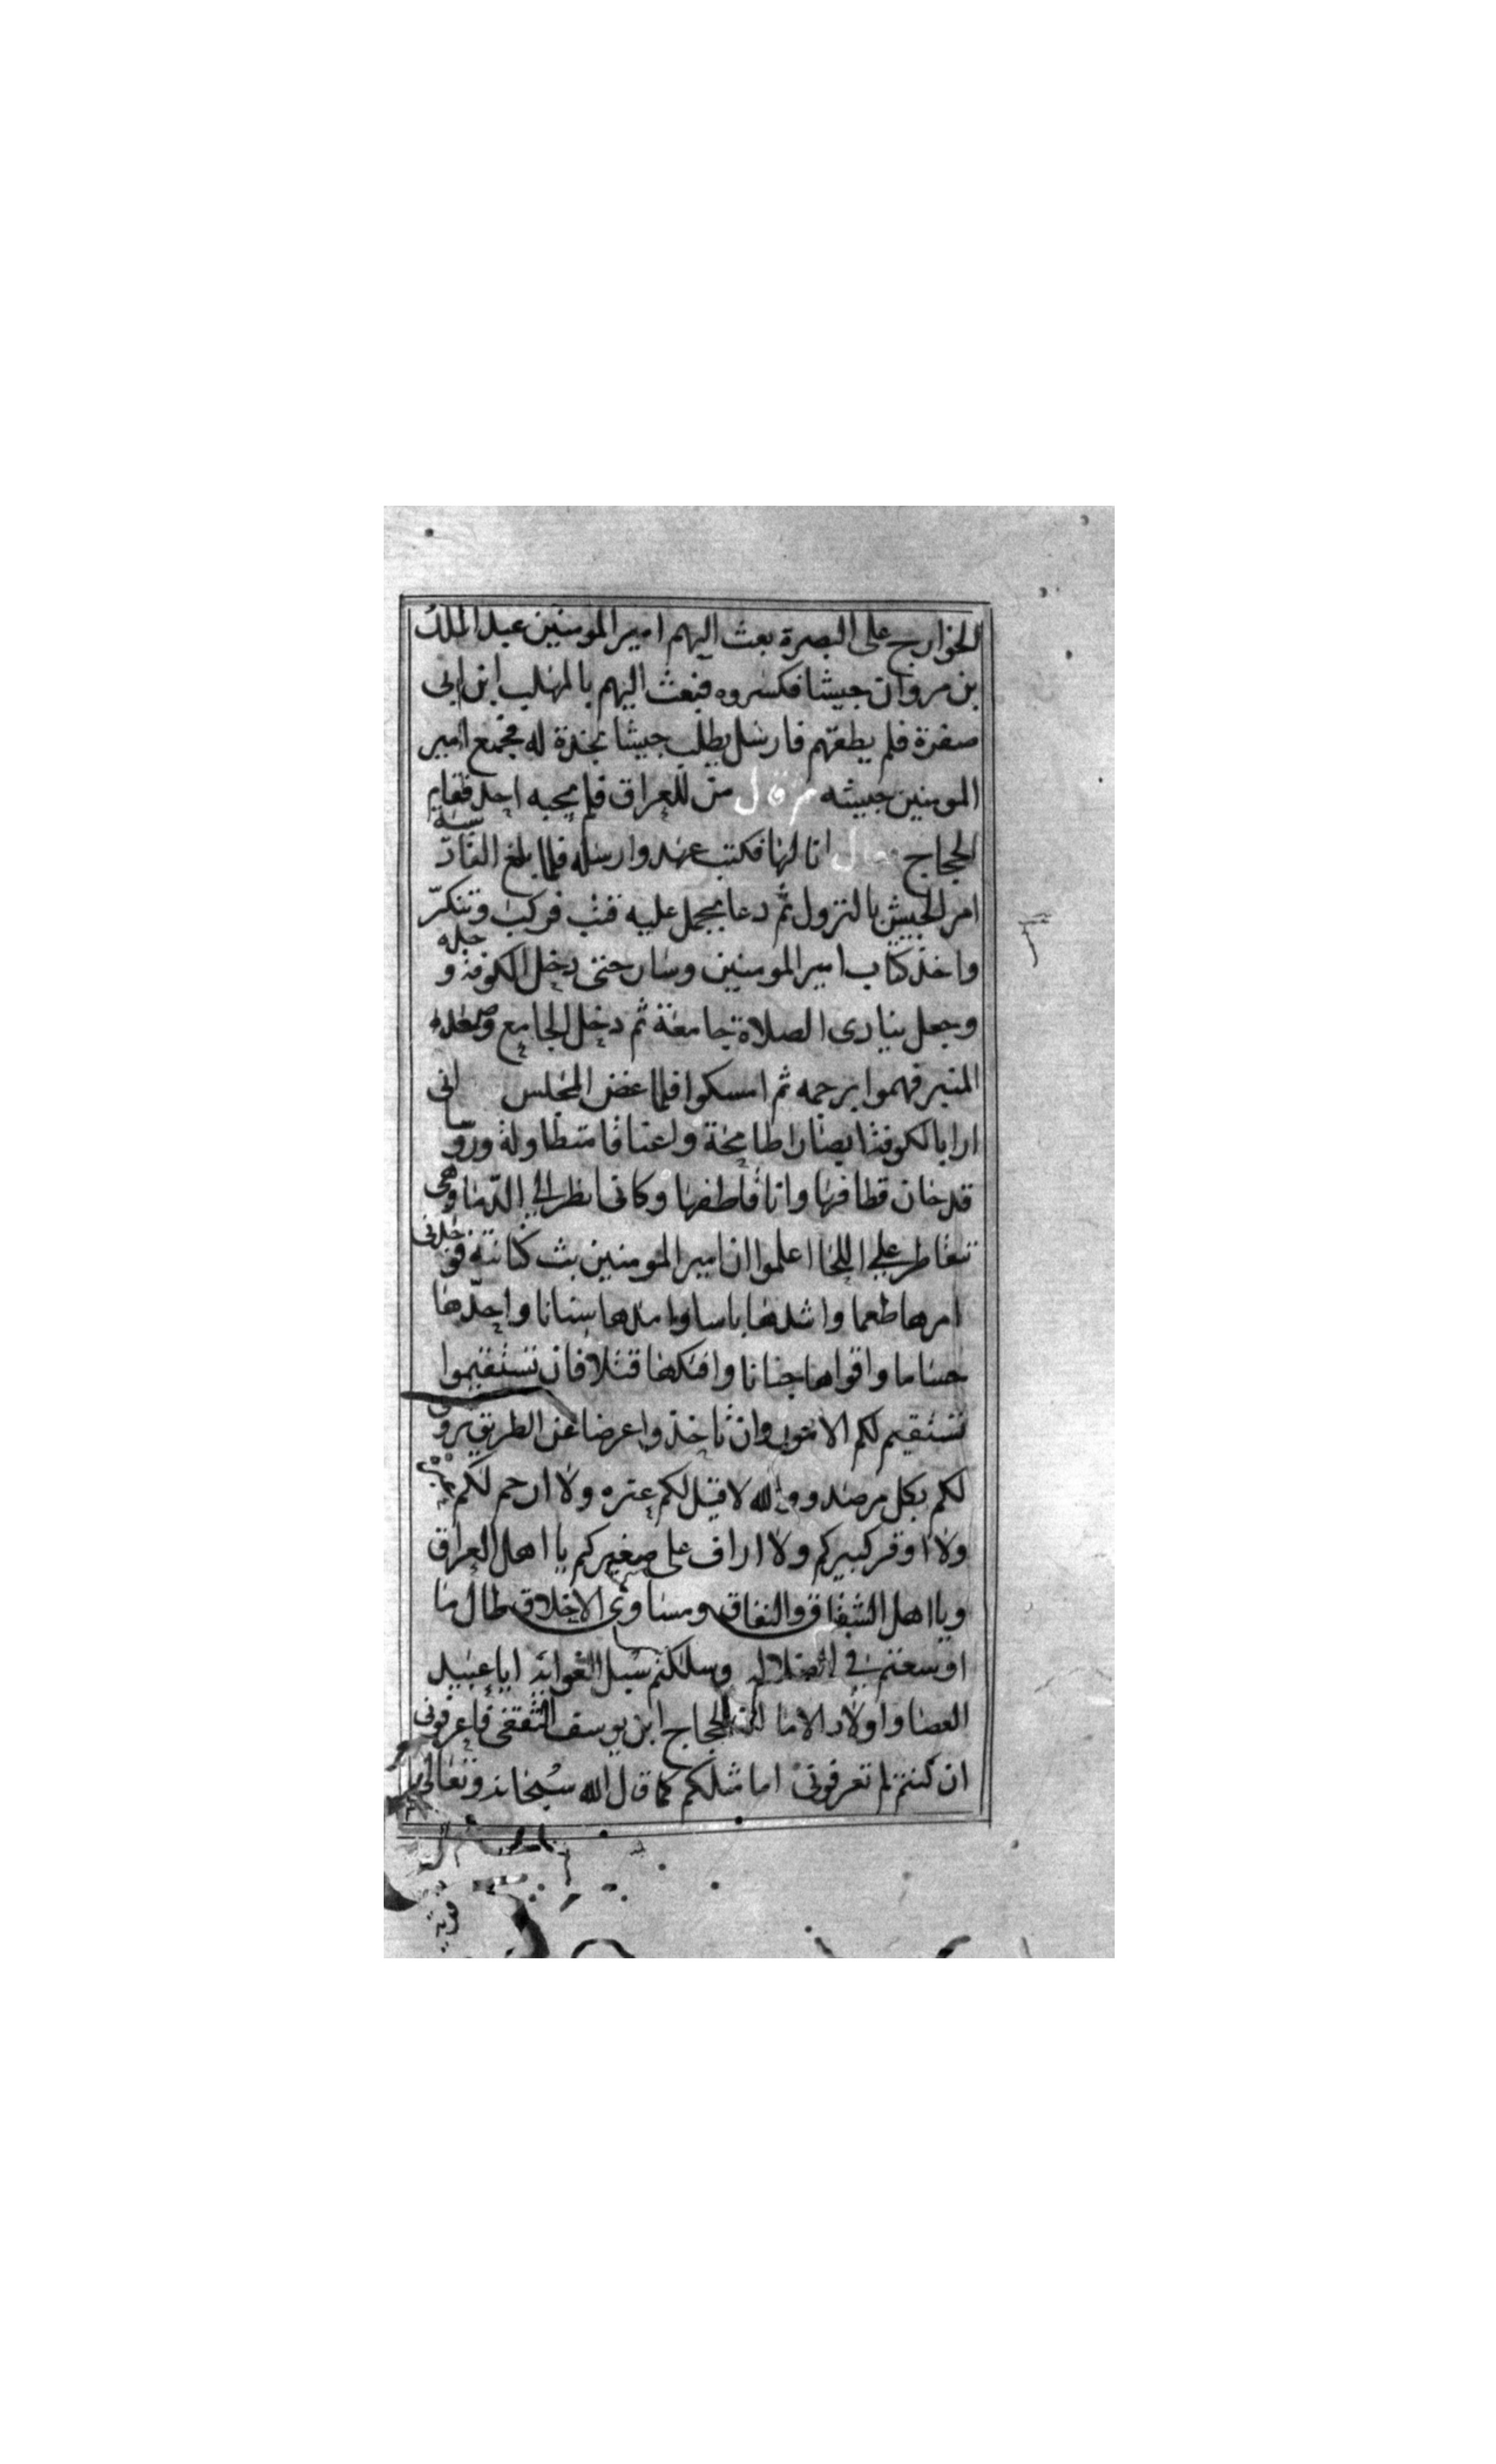 الخوارج على البصرة بعث اليهم امير المومنين عبد الملك
بن مروان جيشا فكسروه فبعث اليهم بالمهلب ابن ابى
صفرة فلم يطقهم فارسل يطلب جيشا نجدة له فجمع امير
المومنين جيشه ثم قال من للعراق فلم يجبه احد فقام
الحجاج فقال انا لها فكتب عهده وارسله فلما بلغ القادسية
امر الجيش بالنزول ثم دعا بجمل عليه قتب فركب وتنكر
واخذ كتاب امير المومنين وسار حتى دخل الكوفة وحده
وجعل ينادى الصلاة جامعة ثم دخل الجامع وصعد
المنبر فهموا برجمه ثم امسكوا فلما غض المجلس انى
ارا بالكوفة ابصارا طامحة واعناقا متطاولة وروسا
قد حان قطافها وانا قاطفها وكانى انظر الى الدما وهى
تتقاطر على اللحا اعلموا ان امير المومنين بث كنانته فوجدنى
امرها طعما واشدها باسا وامدها سنانا واحدها
حساما واقواها جنانا وافتكها قتلا فان تستقيموا
تستقيم لكم الامور وان تاخذوا عرضا عن الطريق تروني
لكم بكل مرصد ووالله لا قيل لكم عتره ولا ارحم لكم
ولا اوقر كبيركم ولا اراف على صغيركم يا اهل العراق
ويا اهل الشقاق والنفاق ومساوى الاخلاق طال ما
اوسعتم في الضلاله وسلكتم سبل الغوايه ايا عبيد
العصا واولاد الاما انا الحجاج ابن يوسف الثقفى فاعرفونى
ان كنتم لم تعرفونى اما مثلكم كما قال الله سبحانه وتعالى
قرية